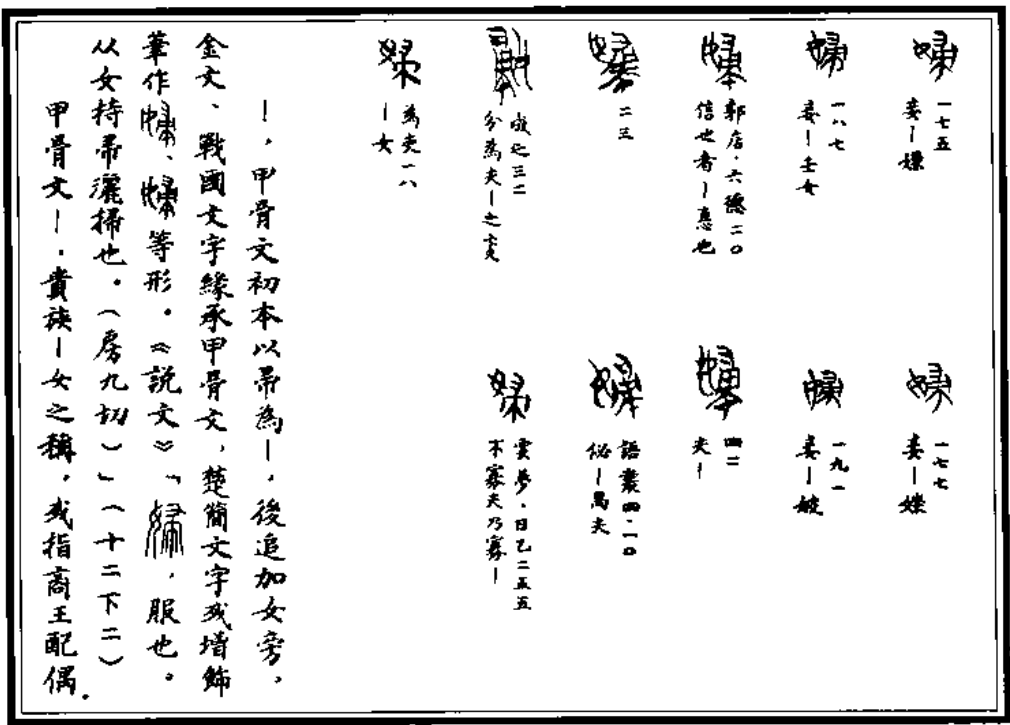 一七五
妾｜㜕
一七七
妾｜
一八七
妾｜壬女
一九一
妾｜
郭店．六德二〇
信也者｜悳也
四二
夫｜
二三
語叢四．一〇
佖｜禺夫
成之三二
分為夫｜之
雲夢．日乙二五五
不寡夫乃寡｜
為吏一八
｜女
｜，甲骨文初本以帚為｜，後追加女旁，
金文、戰國文字緣承甲骨文，楚簡文字或增飾
筆作、等形。《說文》「，服也。
从女持帚灑掃也。（房九切）」（十二下二）
甲骨文｜，貴族｜女之稱，或指商王配偶．